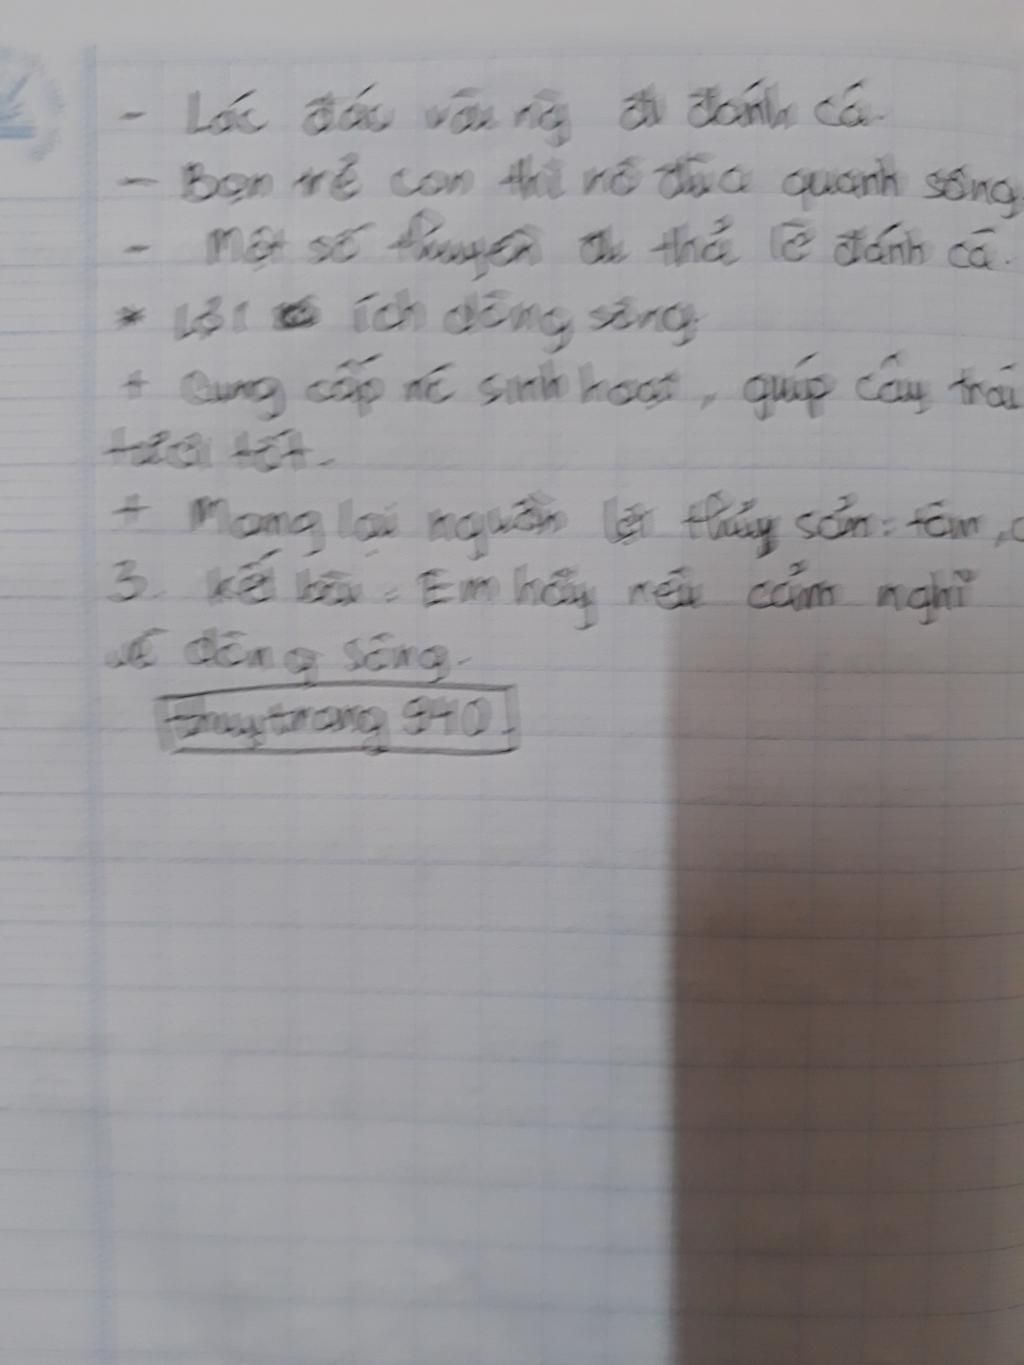 - Lác đác vài ng đi đánh cá.
- Bọn trẻ con thì nô đùa quanh sông.
- Một số thuyền đi thả lê đánh cá.
* Lợi ích dòng sông
+ Cung cấp nc sinh hoạt, giúp cây trái
tươi tốt.
+ Mang lại nguồn lợi thủy sản: tôm, c
3. Kết bài: Em hãy nêu cảm nghĩ
về dòng sông.
thuytrang 940.